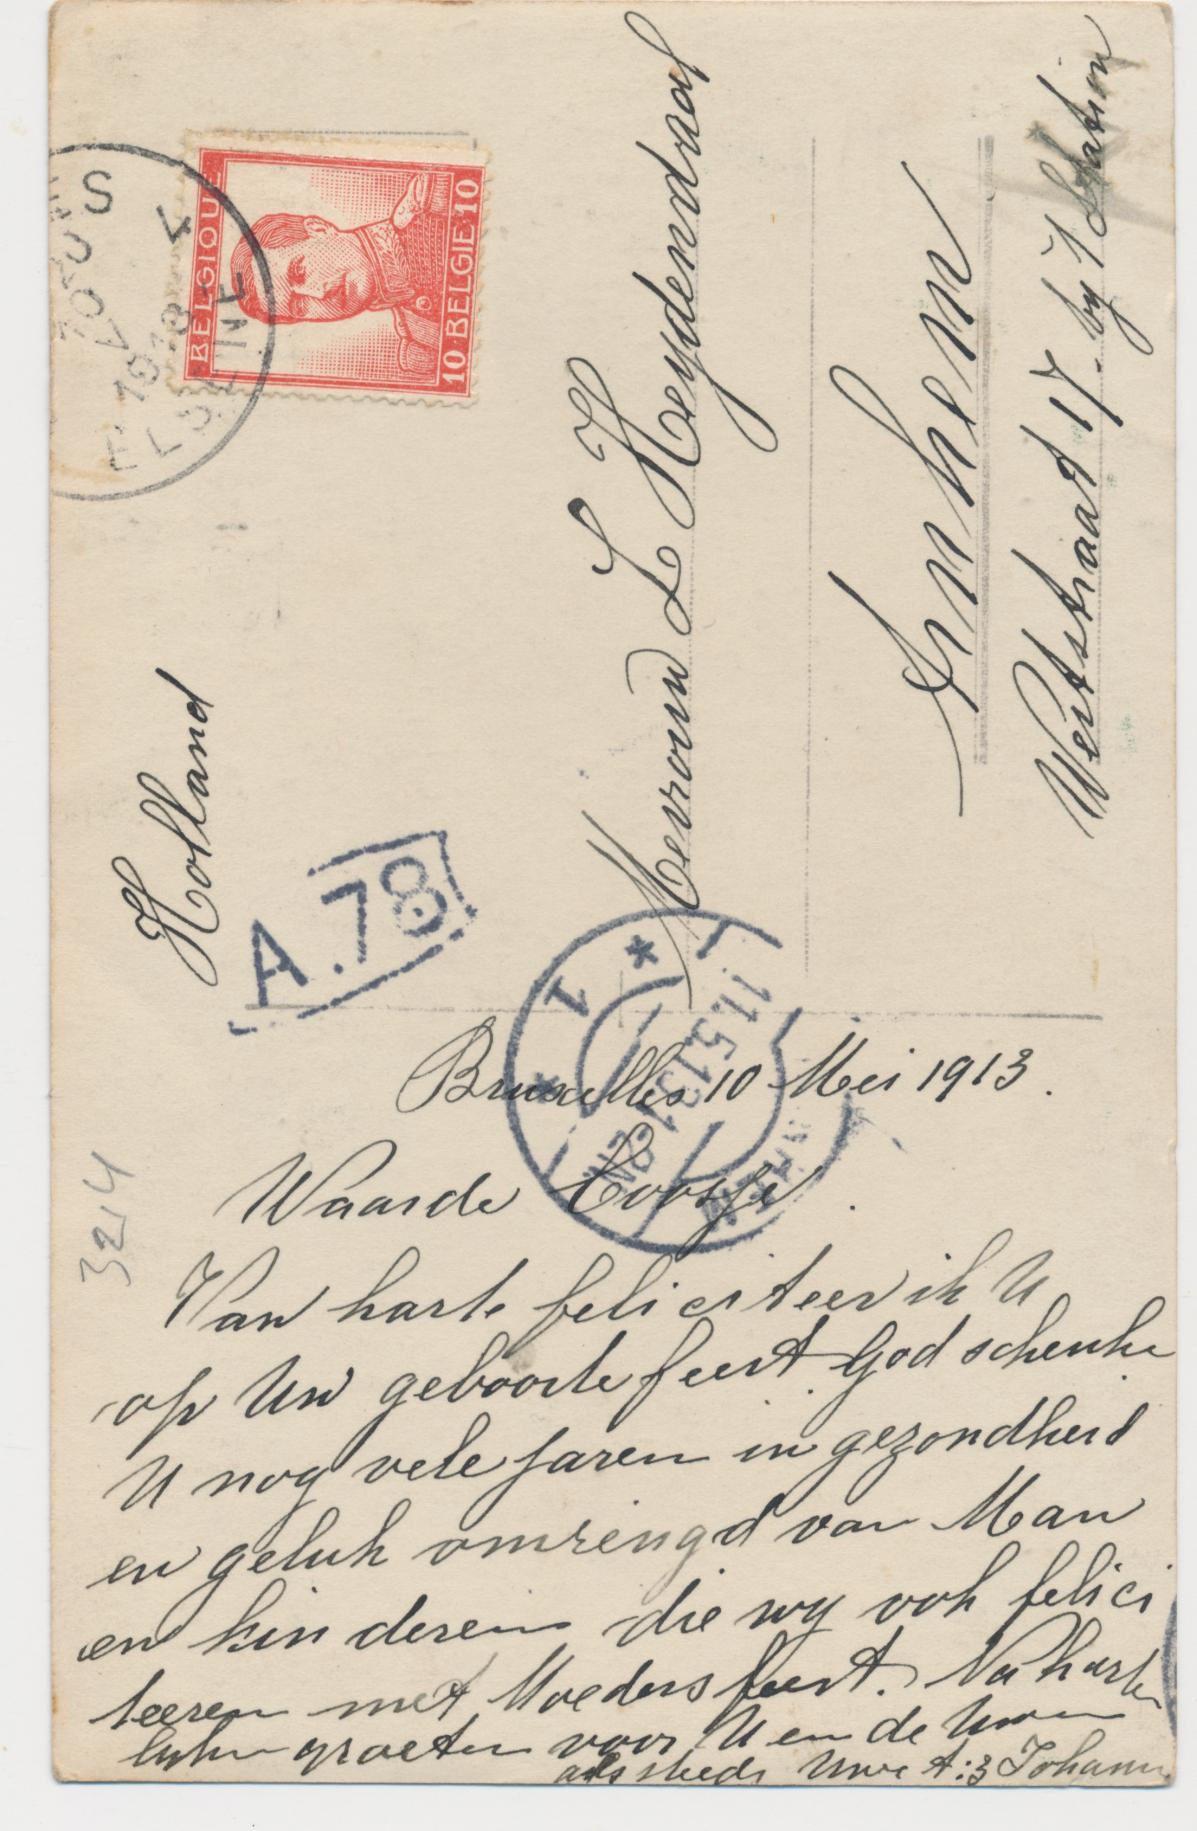 BELGIQUE
10 BELGIE 10
1913
ELSENE
Holland
A.78
Mevrouw L Heydendaal
Arnhem
Weststraat 17 by 't Station
1
11.5.13.1
Bruxelles 10 Mei 1913.
3214
Waarde Coosje.
Van harte feliciteer ik U
op Uw geboorte feest God schenke
U nog vele jaren in gezondheid
en geluk omringd van Man
en kinderen die wy ook felici
teeren met Moeders feest. Na harte
lyke groeten voor U en de Uwen
als steeds Uwe t:z Johann